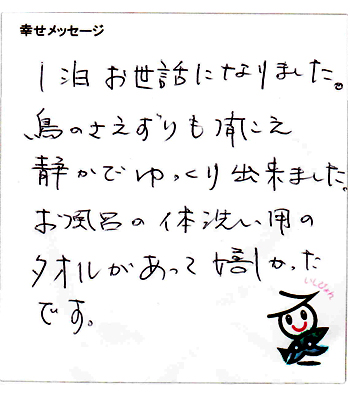 幸せメッセージ
1泊お世話になりました。
鳥のさえずりも聴こえ
静かでゆっくり出来ました。
お風呂の体洗い用の
タオルがあって嬉しかった
です。